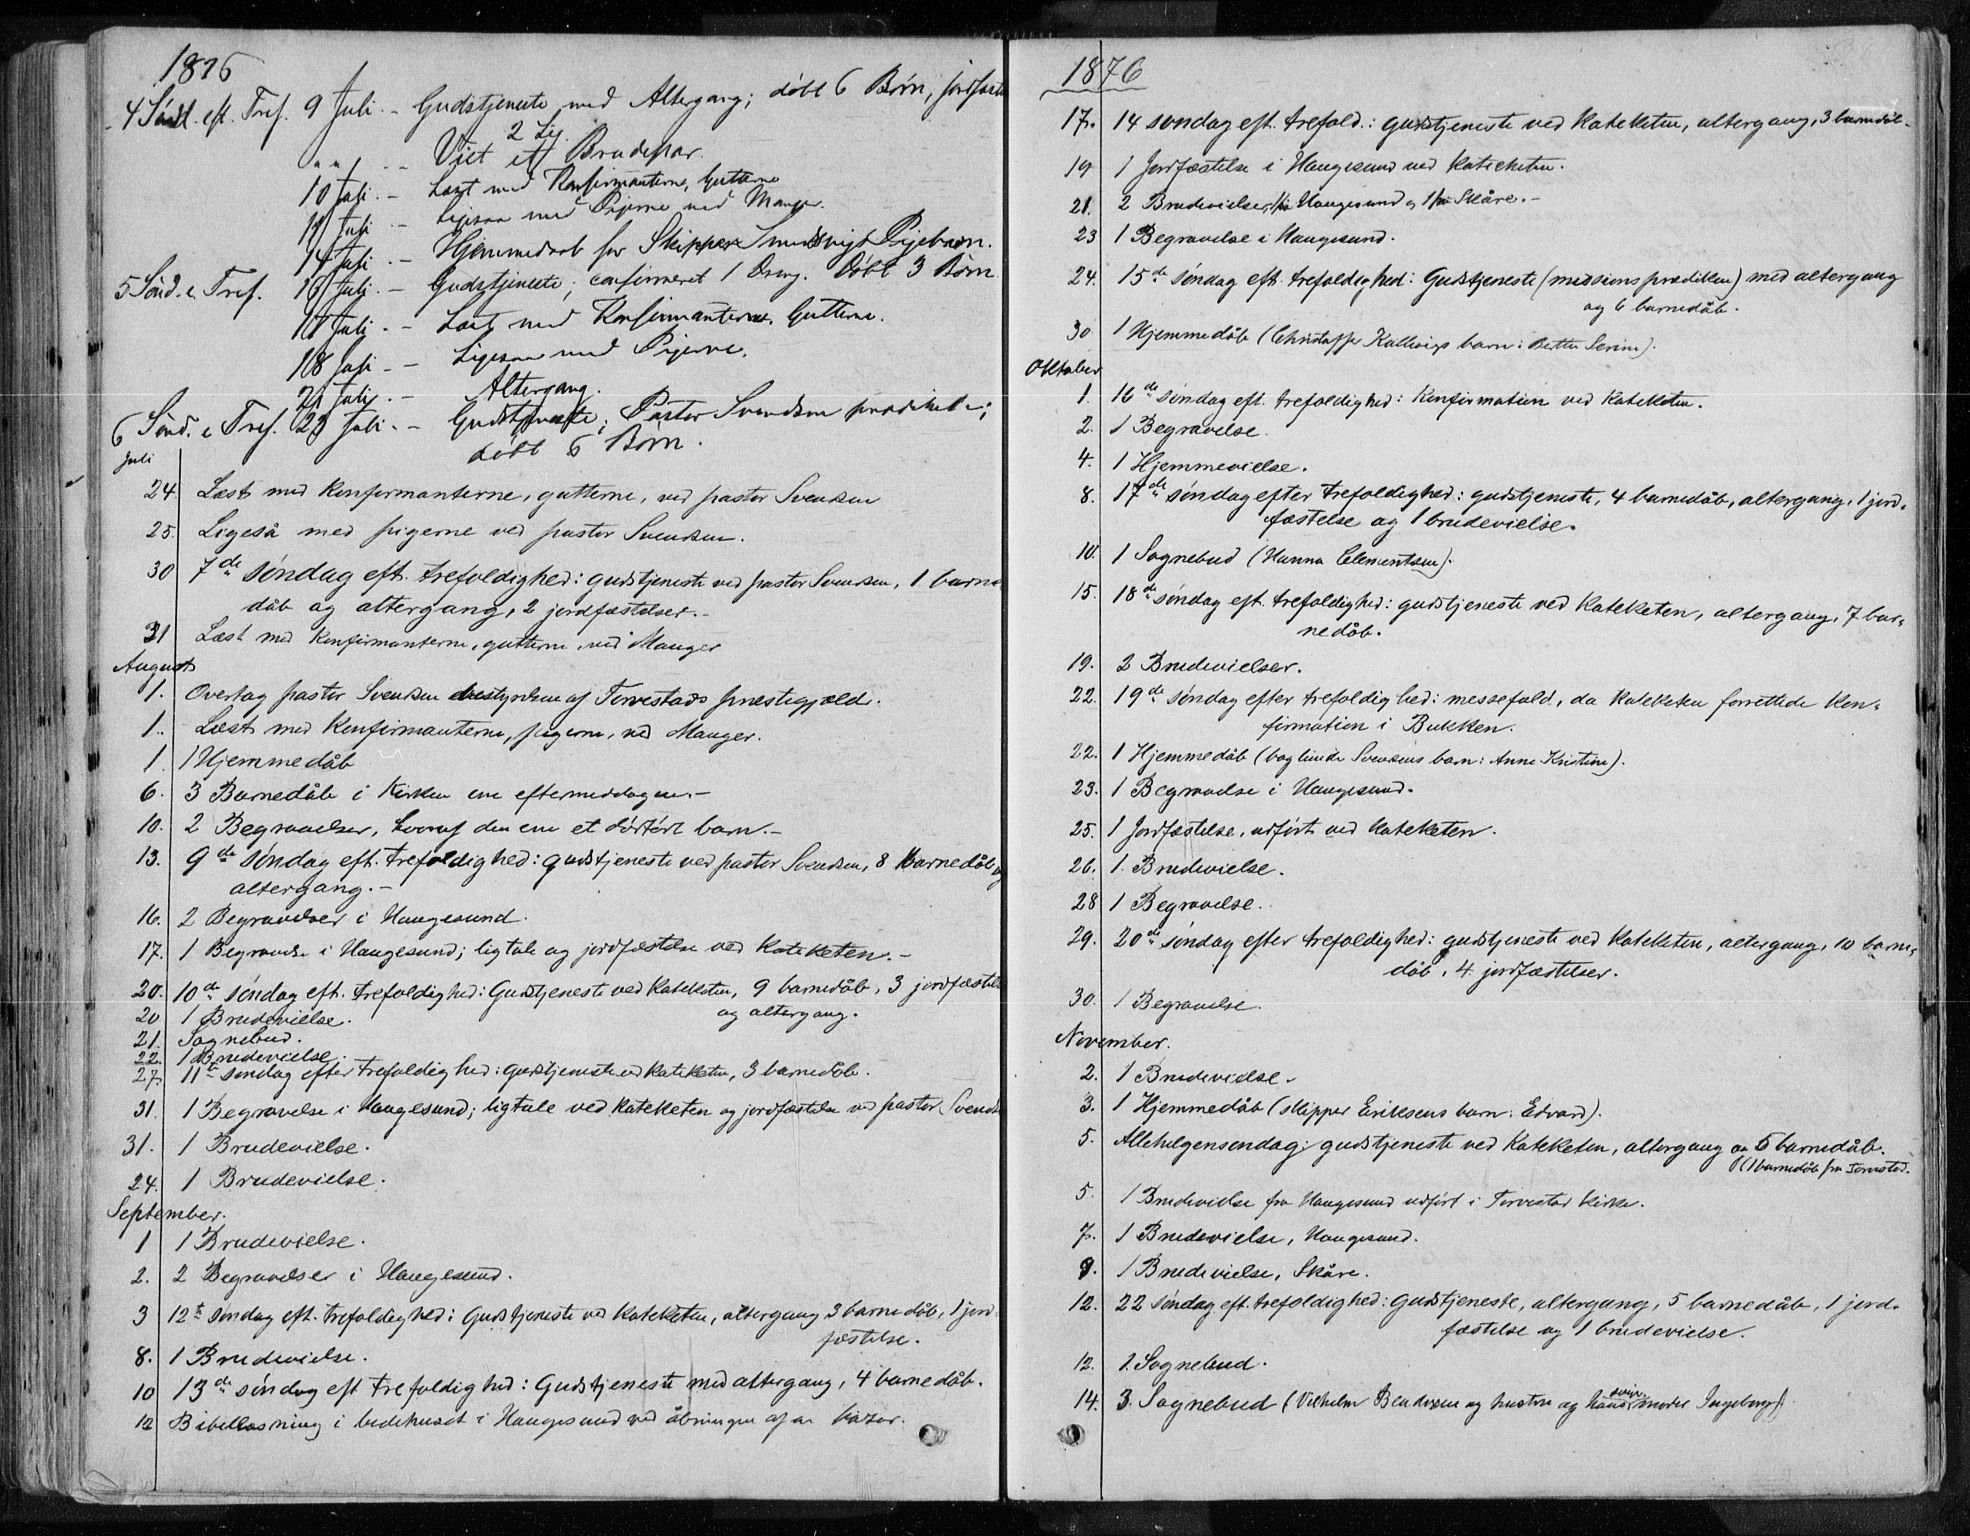 1876
4 Sönd. eft. Tref. 9 Juli. – Gudstjeneste med Altergang; döbt 6 Børn, jordfæst
2 Lig.
" " – Viet et Brudepar.
10 Juli – Læst med Konfirmanterne, Gutterne
11 Juli – Ligesaa med Pigerne ved Manger.
14 Juli – Hjemmedaab for Skipper Smedsvigs Pigebarn.
5 Sönd. e. Tref. 16 Juli. – Gudstjeneste; confirmeret 1 Dreng. Döbt 3 Børn
17 Juli. – Læst med Konfirmanterne, Gutterne.
18 Juli – Ligesaa med Pigerne.
21 Juli. – Altergang.
6 Sönd. e Tref. 23 Juli. – Gudstjeneste; Pastor Svendsen prædikede;
döbt 6 Børn.
Juli
24. Læst med konfirmanterne, gutterne, ved pastor Svendsen
25. Ligeså med pigerne ved pastor Svendsen.
30 7de søndag eft. trefoldighed: gudstjeneste ved pastor Svendsen, 1 barne
dåb og altergang, 2 jordfæstelser.–
31 Læst med konfirmanterne, gutterne, ved Manger
August
1. Overtog pastor Svendsen bestyrelsen af Torvestads prestegjæld.
1.. Læst med konfirmanterne, pigerne, ved Manger.
1. 1 Hjemmedåb
6. 3 Barnedåb i kirken om eftermiddagen.–
10. 2 Begravelser, hvoraf den ene et dødfødt barn.–
13. 9de søndag eft. trefoldighed: gudstjeneste ved pastor Svendsen, 8 barnedåb og
altergang.–
16. 2 Begravelser i Haugesund.
17. 1 Begravelse i Haugesund; ligtale og jordfæstelse ved kateketen.–
20. 10de søndag eft. trefoldighed: Gudstjeneste ved kateketen, 9 barnedåb, 3 jordfæstels
og altergang.
20 1 Brudevielse.
21. Sognebud.
22. 1 Brudevielse.
27. 11te søndag efter trefoldighed: gudstjeneste ved kateketen, 3 barnedåb.
31. 1 Begravelse i Haugesund; ligtale ved kateketen og jordfæstelse ved pastor Svends
31. 1 Brudevielse.
24. 1 Brudevielse.
September.
1 1 Brudevielse.
2. 2 Begravelser i Haugesund.
3 12te søndag eft. trefoldighed: Gudstjeneste ved kateketen, altergang 3 barnedåb, 1 jord-
fæstelse.
8. 1 Brudevielse.
10 13de søndag eft trefoldighed: Gudstjeneste med altergang, 4 barnedåb.
12 Bibellæsning i bedehuset i Haugesund ved åbningen af en bazar.
1876
17. 14 søndag eft. trefold.: gudstjeneste ved kateketen, altergang, 3 barnedåb.
19 1 Jordfæstelse i Haugesund ved kateketen.
21. 2 Brudevielser, 1 fra Haugesund og 1 fra Skåre.–
23 1 Begravelse i Haugesund.
24. 15de søndag eft. trefoldighed: Gudstjeneste (missionsprædiken) med altergang
og 6 barnedåb.
30 1 Hjemmedåb (Christoffer Kallevigs barn: Serine).
Oktober
1. 16de søndag eft. trefoldighed: Konfirmation ved kateketen.
2. 1 Begravelse.
4. 1 Hjemmevielse.
8. 17de søndag efter trefoldighed: gudstjeneste, 4 barnedåb, altergang, 1 jord-
fæstelse og 1 brudevielse.
10. 1 Sognebud (Hanna Clementsen).
15. 18de søndag eft. trefoldighed: gudstjeneste ved kateketen, altergang, 7 bar-
nedåb.
19. 2 Brudevielser.
22. 19de søndag efter trefoldighed: messefald, da kateketen forrettede kon-
firmation i Bukken.
22. 1 Hjemmedåb (Svendsens barn: Anne Kristine).
23. 1 Begravelse i Haugesund.
25. 1 Jordfæstelse, udført ved kateketen.
26. 1. Brudevielse.
28 1 Begravelse.
29. 20de søndag efter trefoldighed: gudstjeneste ved kateketen, altergang, 10 barne-
dåb, 4 jordfæstelser.
30. 1 Begravelse.
November.
2. 1 Brudevielse.
3. 1 Hjemmedåb (skipper Eriksens barn: Edvard).
5. Allehelgensøndag: gudstjeneste ved kateketen, altergang og 5 barnedåb.
(1 barnedåb fra Torvestad.
5. 1 Brudevielse fra Haugesund udført i Torvestad kirke.
7. 1 Brudevielse, Haugesund.
9. 1 Brudevielse, Skåre.
12. 22 søndag eft. trefoldighed: gudstjeneste, altergang, 5 barnedåb, 1 jord-
fæstelse og 1 brudevielse.
12. 1. Sognebud.
14. 3. Sognebud (Vilhelm Bendixen og hustru og hans sviger moder Ingeborg).